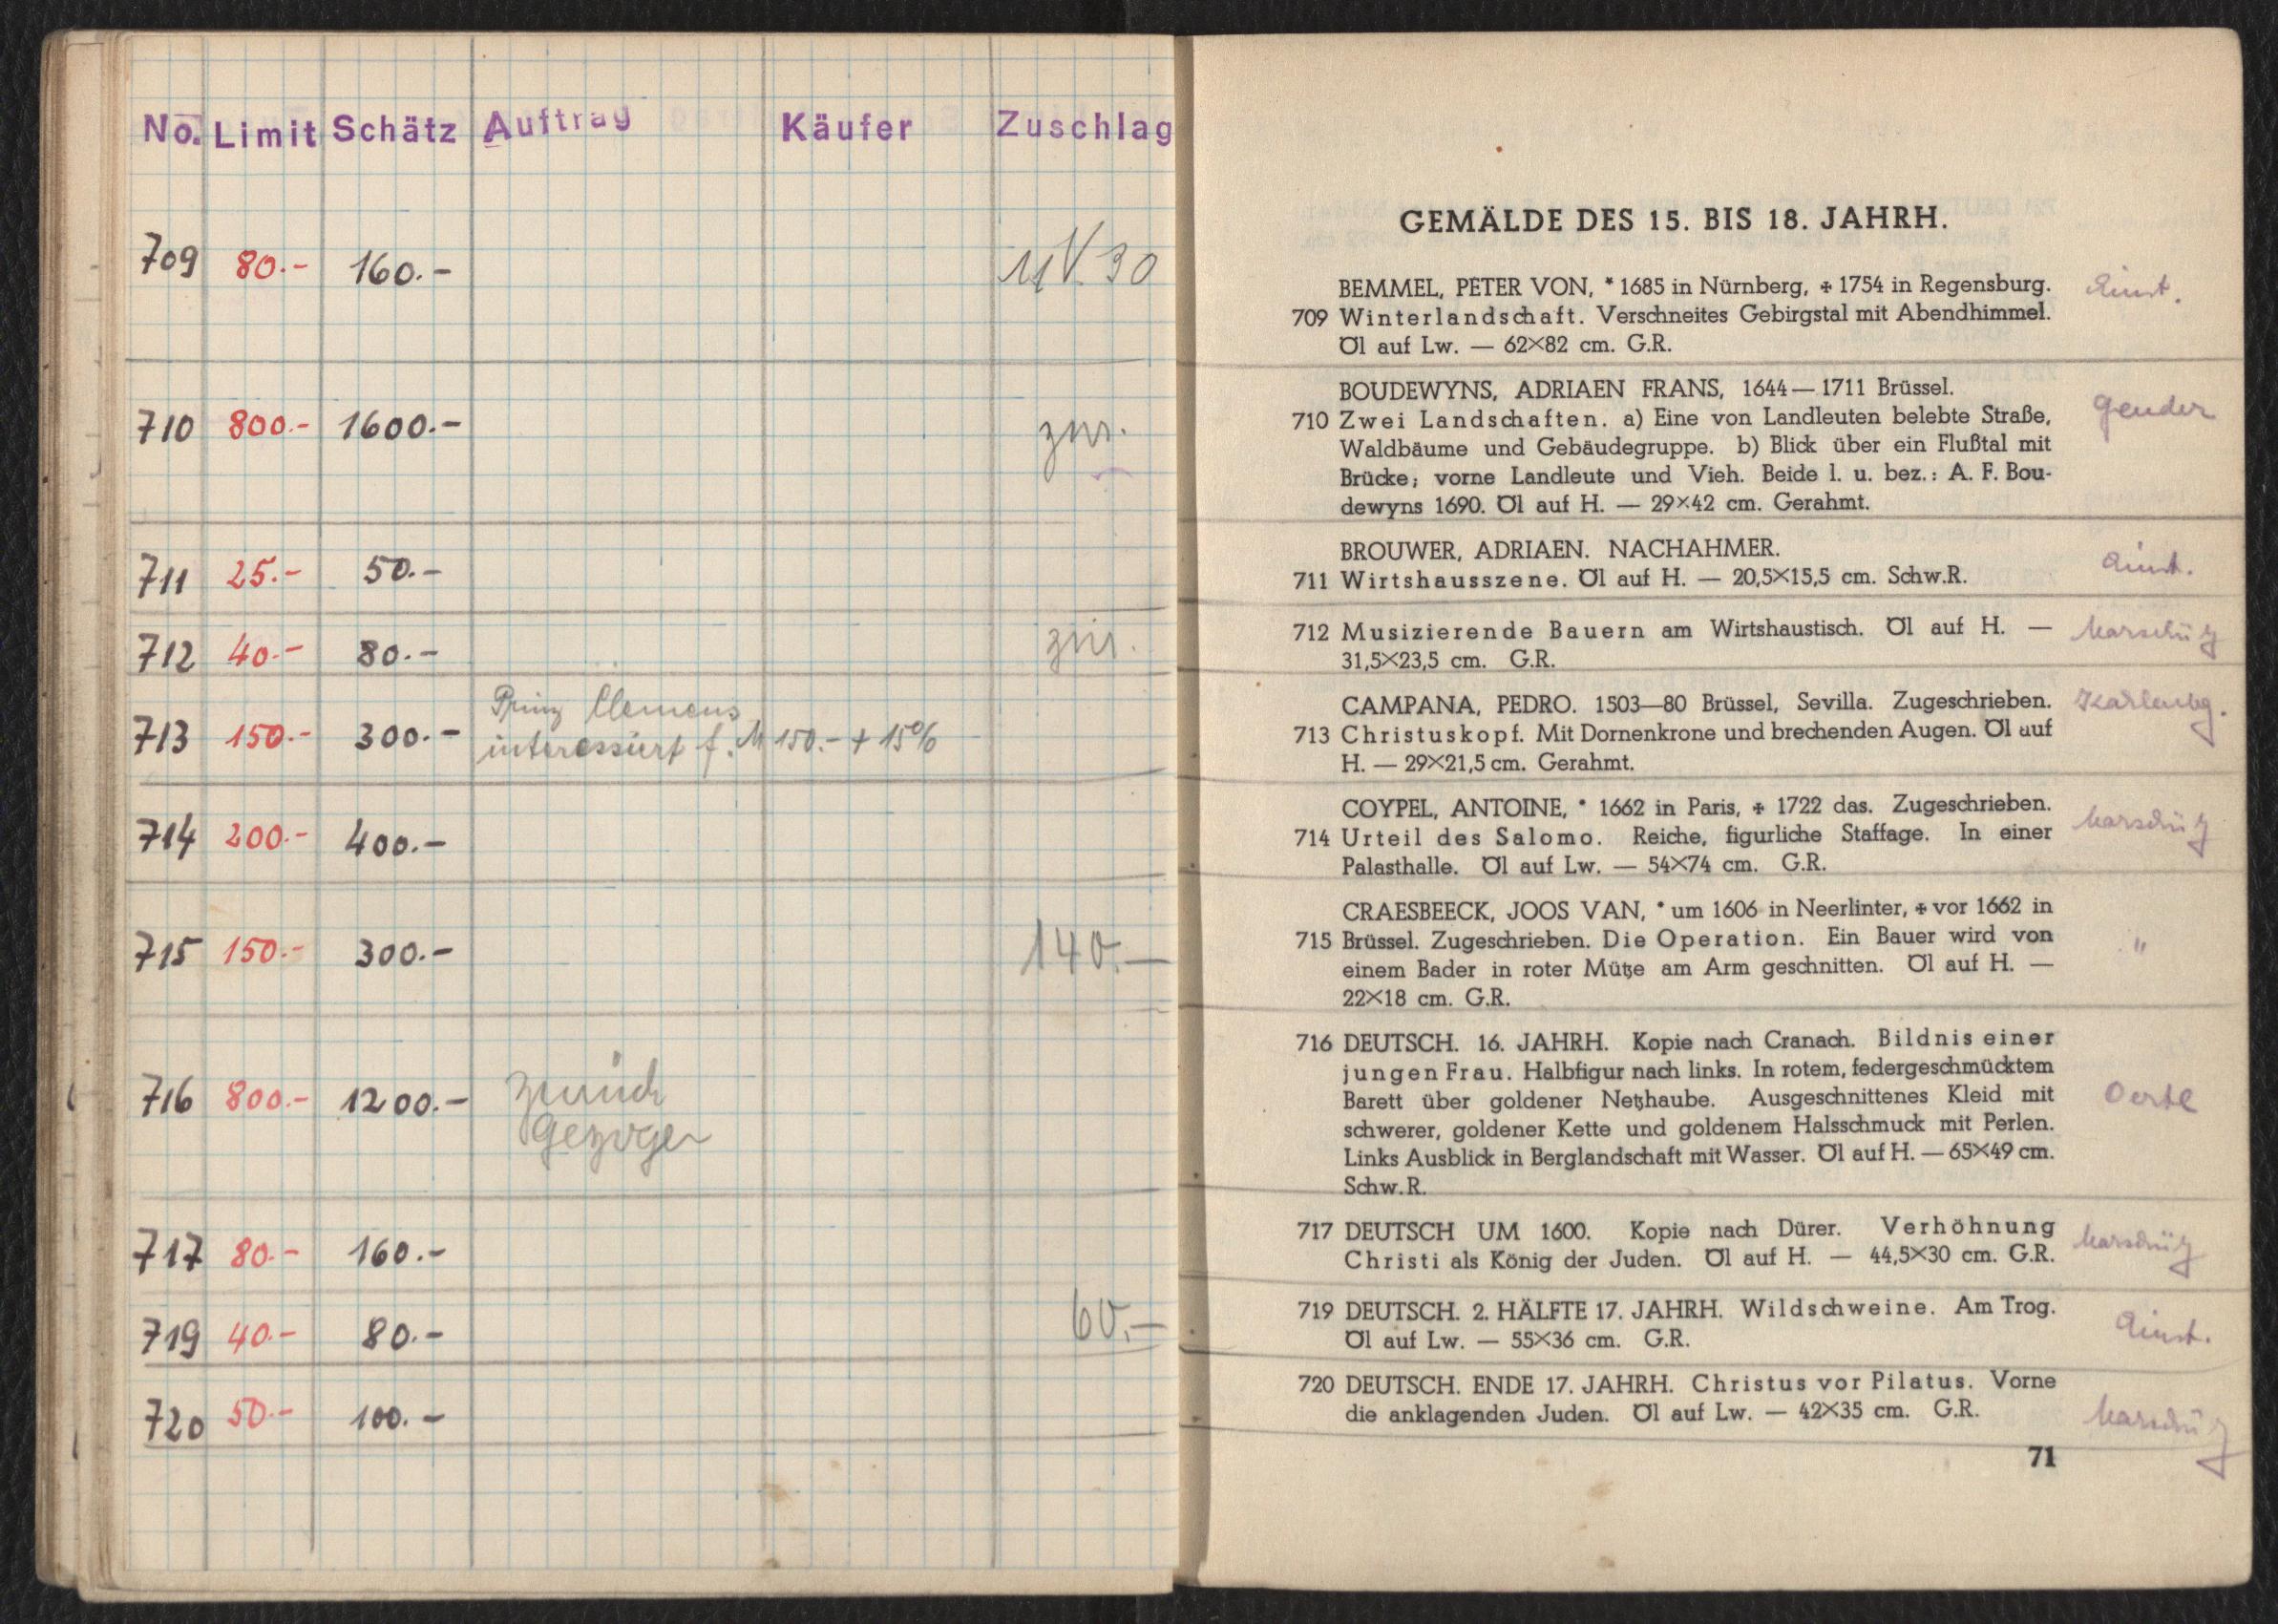 No. Limit Schätz Auftrag Käufer Zuschlag
709 80.- 160.-
710 800.- 1600.- zur.
711 25.- 50.-
712 40.- 80.- zur.
Prinz Clemens
713 150.- 300.- interessiert f. M 150.- + 15%
714 200.- 400.-
715 150.- 300.- 140.-
716 800.- 1200.- zurück
gezogen
717 80.- 160.-
719 40.- 80.- 60.-
720 50.- 100.-
GEMÄLDE DES 15. BIS 18. JAHRH.
BEMMEL, PETER VON, * 1685 in Nürnberg, ✠ 1754 in Regensburg.
709 Winterlandschaft. Verschneites Gebirgstal mit Abendhimmel.
Öl auf Lw. — 62×82 cm. G.R.
BOUDEWYNS, ADRIAEN FRANS, 1644—1711 Brüssel.
710 Zwei Landschaften. a) Eine von Landleuten belebte Straße,
Waldbäume und Gebäudegruppe. b) Blick über ein Flußtal mit
Brücke; vorne Landleute und Vieh. Beide l. u. bez.: A. F. Bou-
dewyns 1690. Öl auf H. — 29×42 cm. Gerahmt.
BROUWER, ADRIAEN. NACHAHMER.
711 Wirtshausszene. Öl auf H. — 20,5×15,5 cm. Schw.R.
712 Musizierende Bauern am Wirtshaustisch. Öl auf H. —
31,5×23,5 cm. G.R.
CAMPANA, PEDRO. 1503—80 Brüssel, Sevilla. Zugeschrieben.
713 Christuskopf. Mit Dornenkrone und brechenden Augen. Öl auf
H. — 29×21,5 cm. Gerahmt.
COYPEL, ANTOINE, * 1662 in Paris, ✠ 1722 das. Zugeschrieben.
714 Urteil des Salomo. Reiche, figurliche Staffage. In einer
Palasthalle. Öl auf Lw. — 54×74 cm. G.R.
CRAESBEECK, JOOS VAN, * um 1606 in Neerlinter, ✠ vor 1662 in
715 Brüssel. Zugeschrieben. Die Operation. Ein Bauer wird von "
einem Bader in roter Mütze am Arm geschnitten. Öl auf H. —
22×18 cm. G.R.
716 DEUTSCH. 16. JAHRH. Kopie nach Cranach. Bildnis einer
jungen Frau. Halbfigur nach links. In rotem, federgeschmücktem
Barett über goldener Netzhaube. Ausgeschnittenes Kleid mit
schwerer, goldener Kette und goldenem Halsschmuck mit Perlen.
Links Ausblick in Berglandschaft mit Wasser. Öl auf H. — 65×49 cm.
Schw.R.
717 DEUTSCH UM 1600. Kopie nach Dürer. Verhöhnung
Christi als König der Juden. Öl auf H. — 44,5×30 cm. G.R.
719 DEUTSCH. 2. HÄLFTE 17. JAHRH. Wildschweine. Am Trog.
Öl auf Lw. — 55×36 cm. G.R.
720 DEUTSCH. ENDE 17. JAHRH. Christus vor Pilatus. Vorne
die anklagenden Juden. Öl auf Lw. — 42×35 cm. G.R.
71